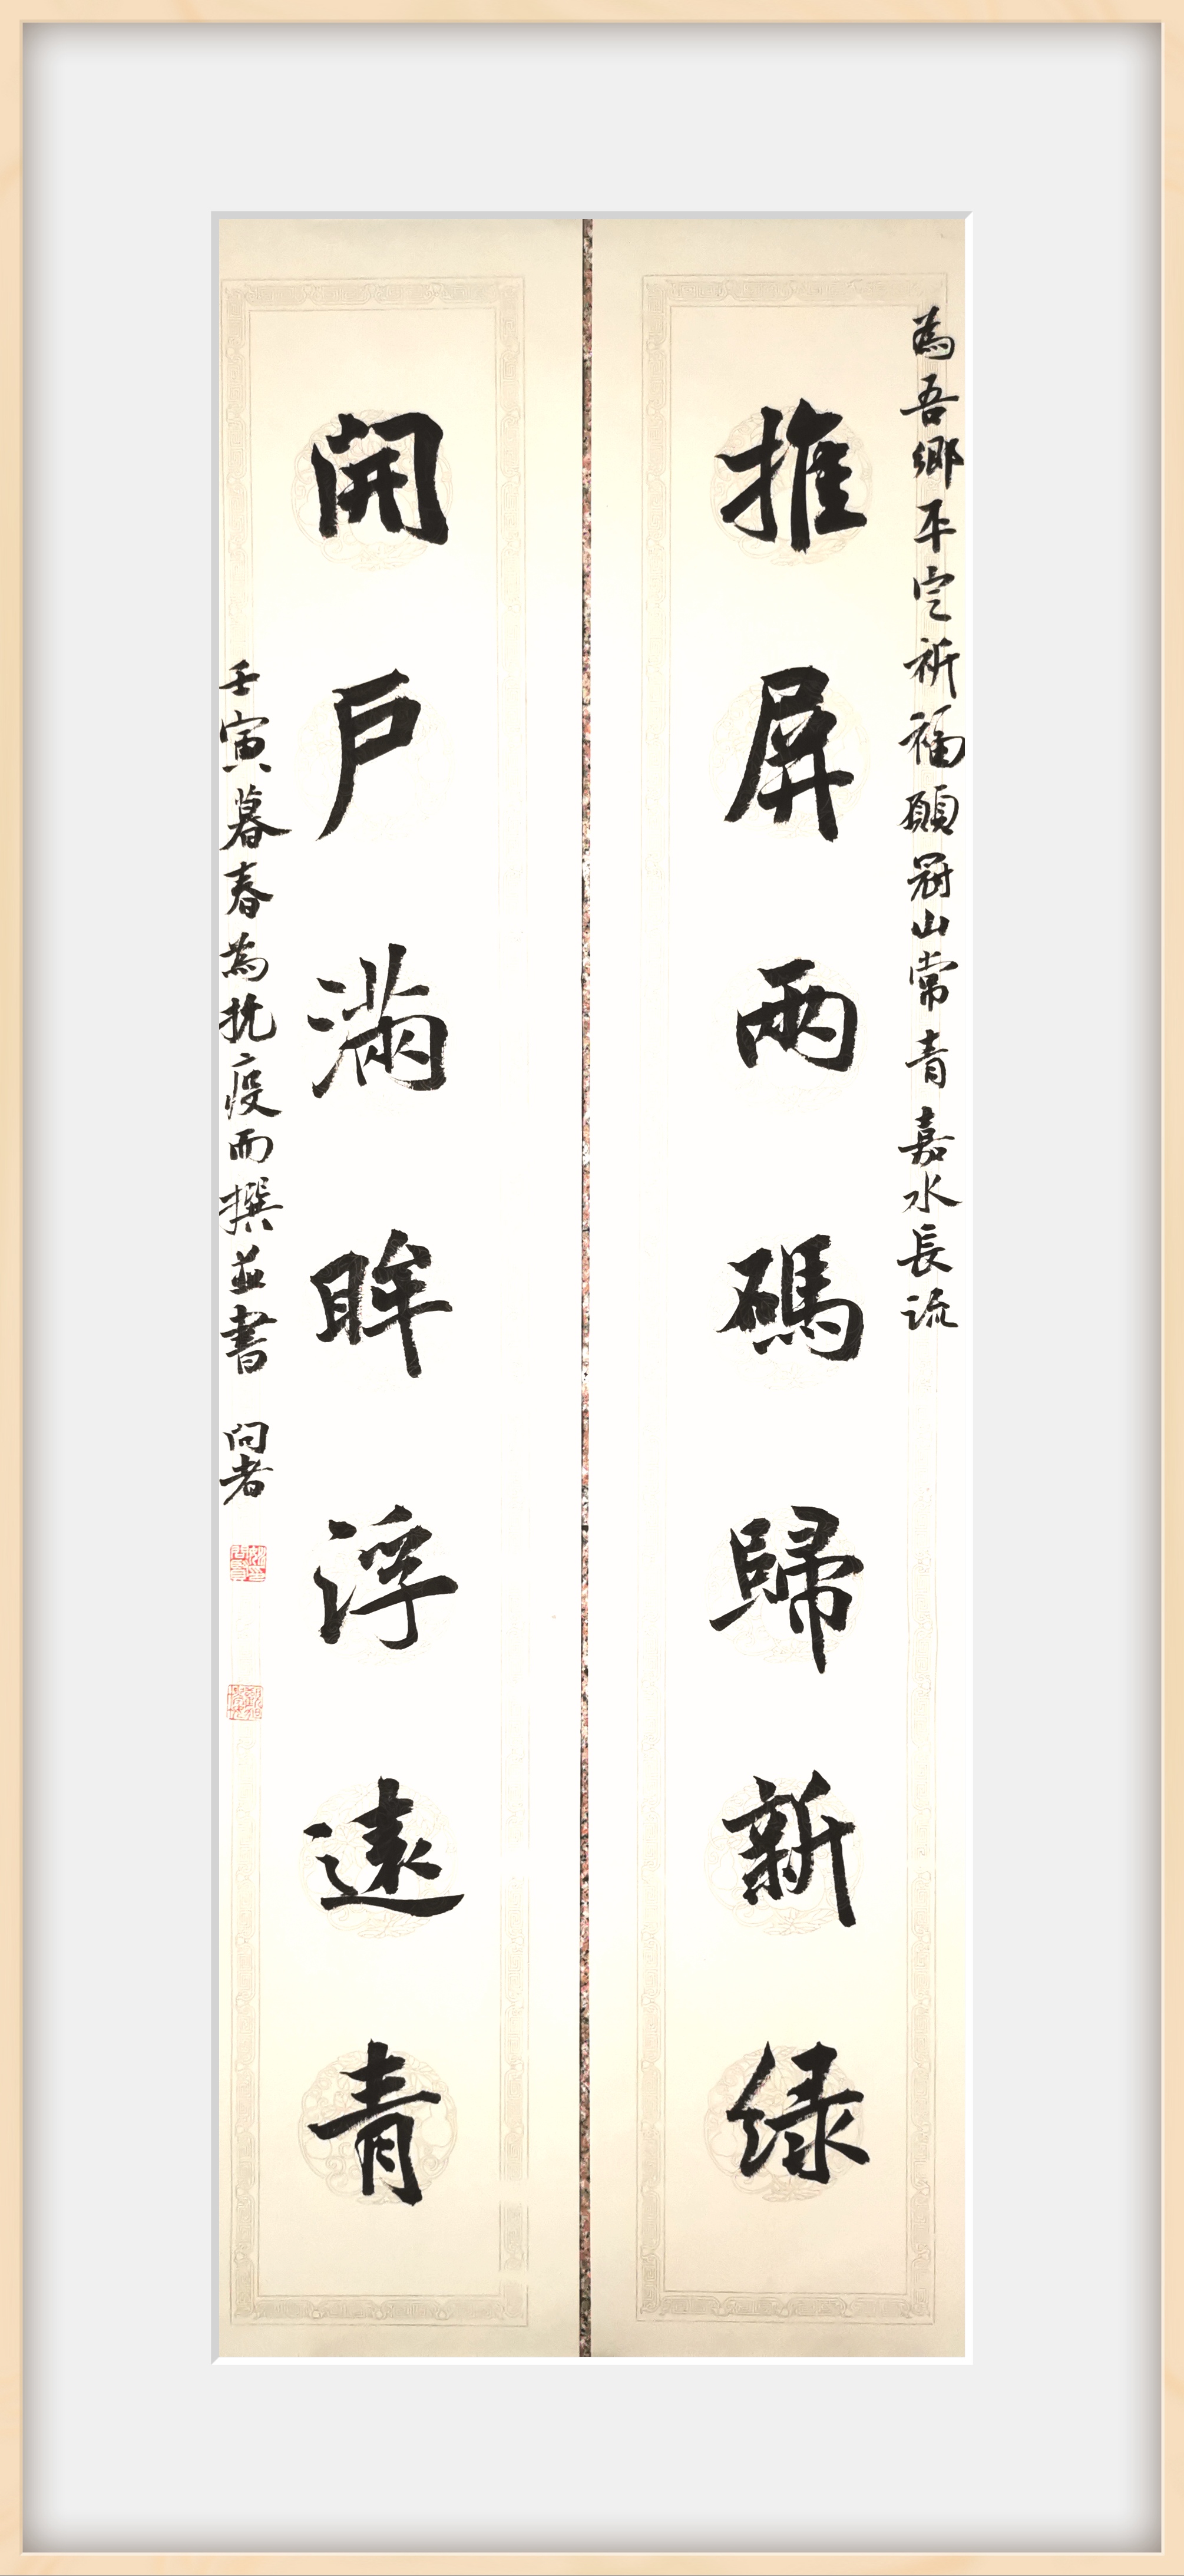 為吾鄉平定祈福願冠山常青嘉水長流
推屏兩碼歸新緑
開戶滿眸浮遠青
壬寅暮春為抗疫而撰並書 問者